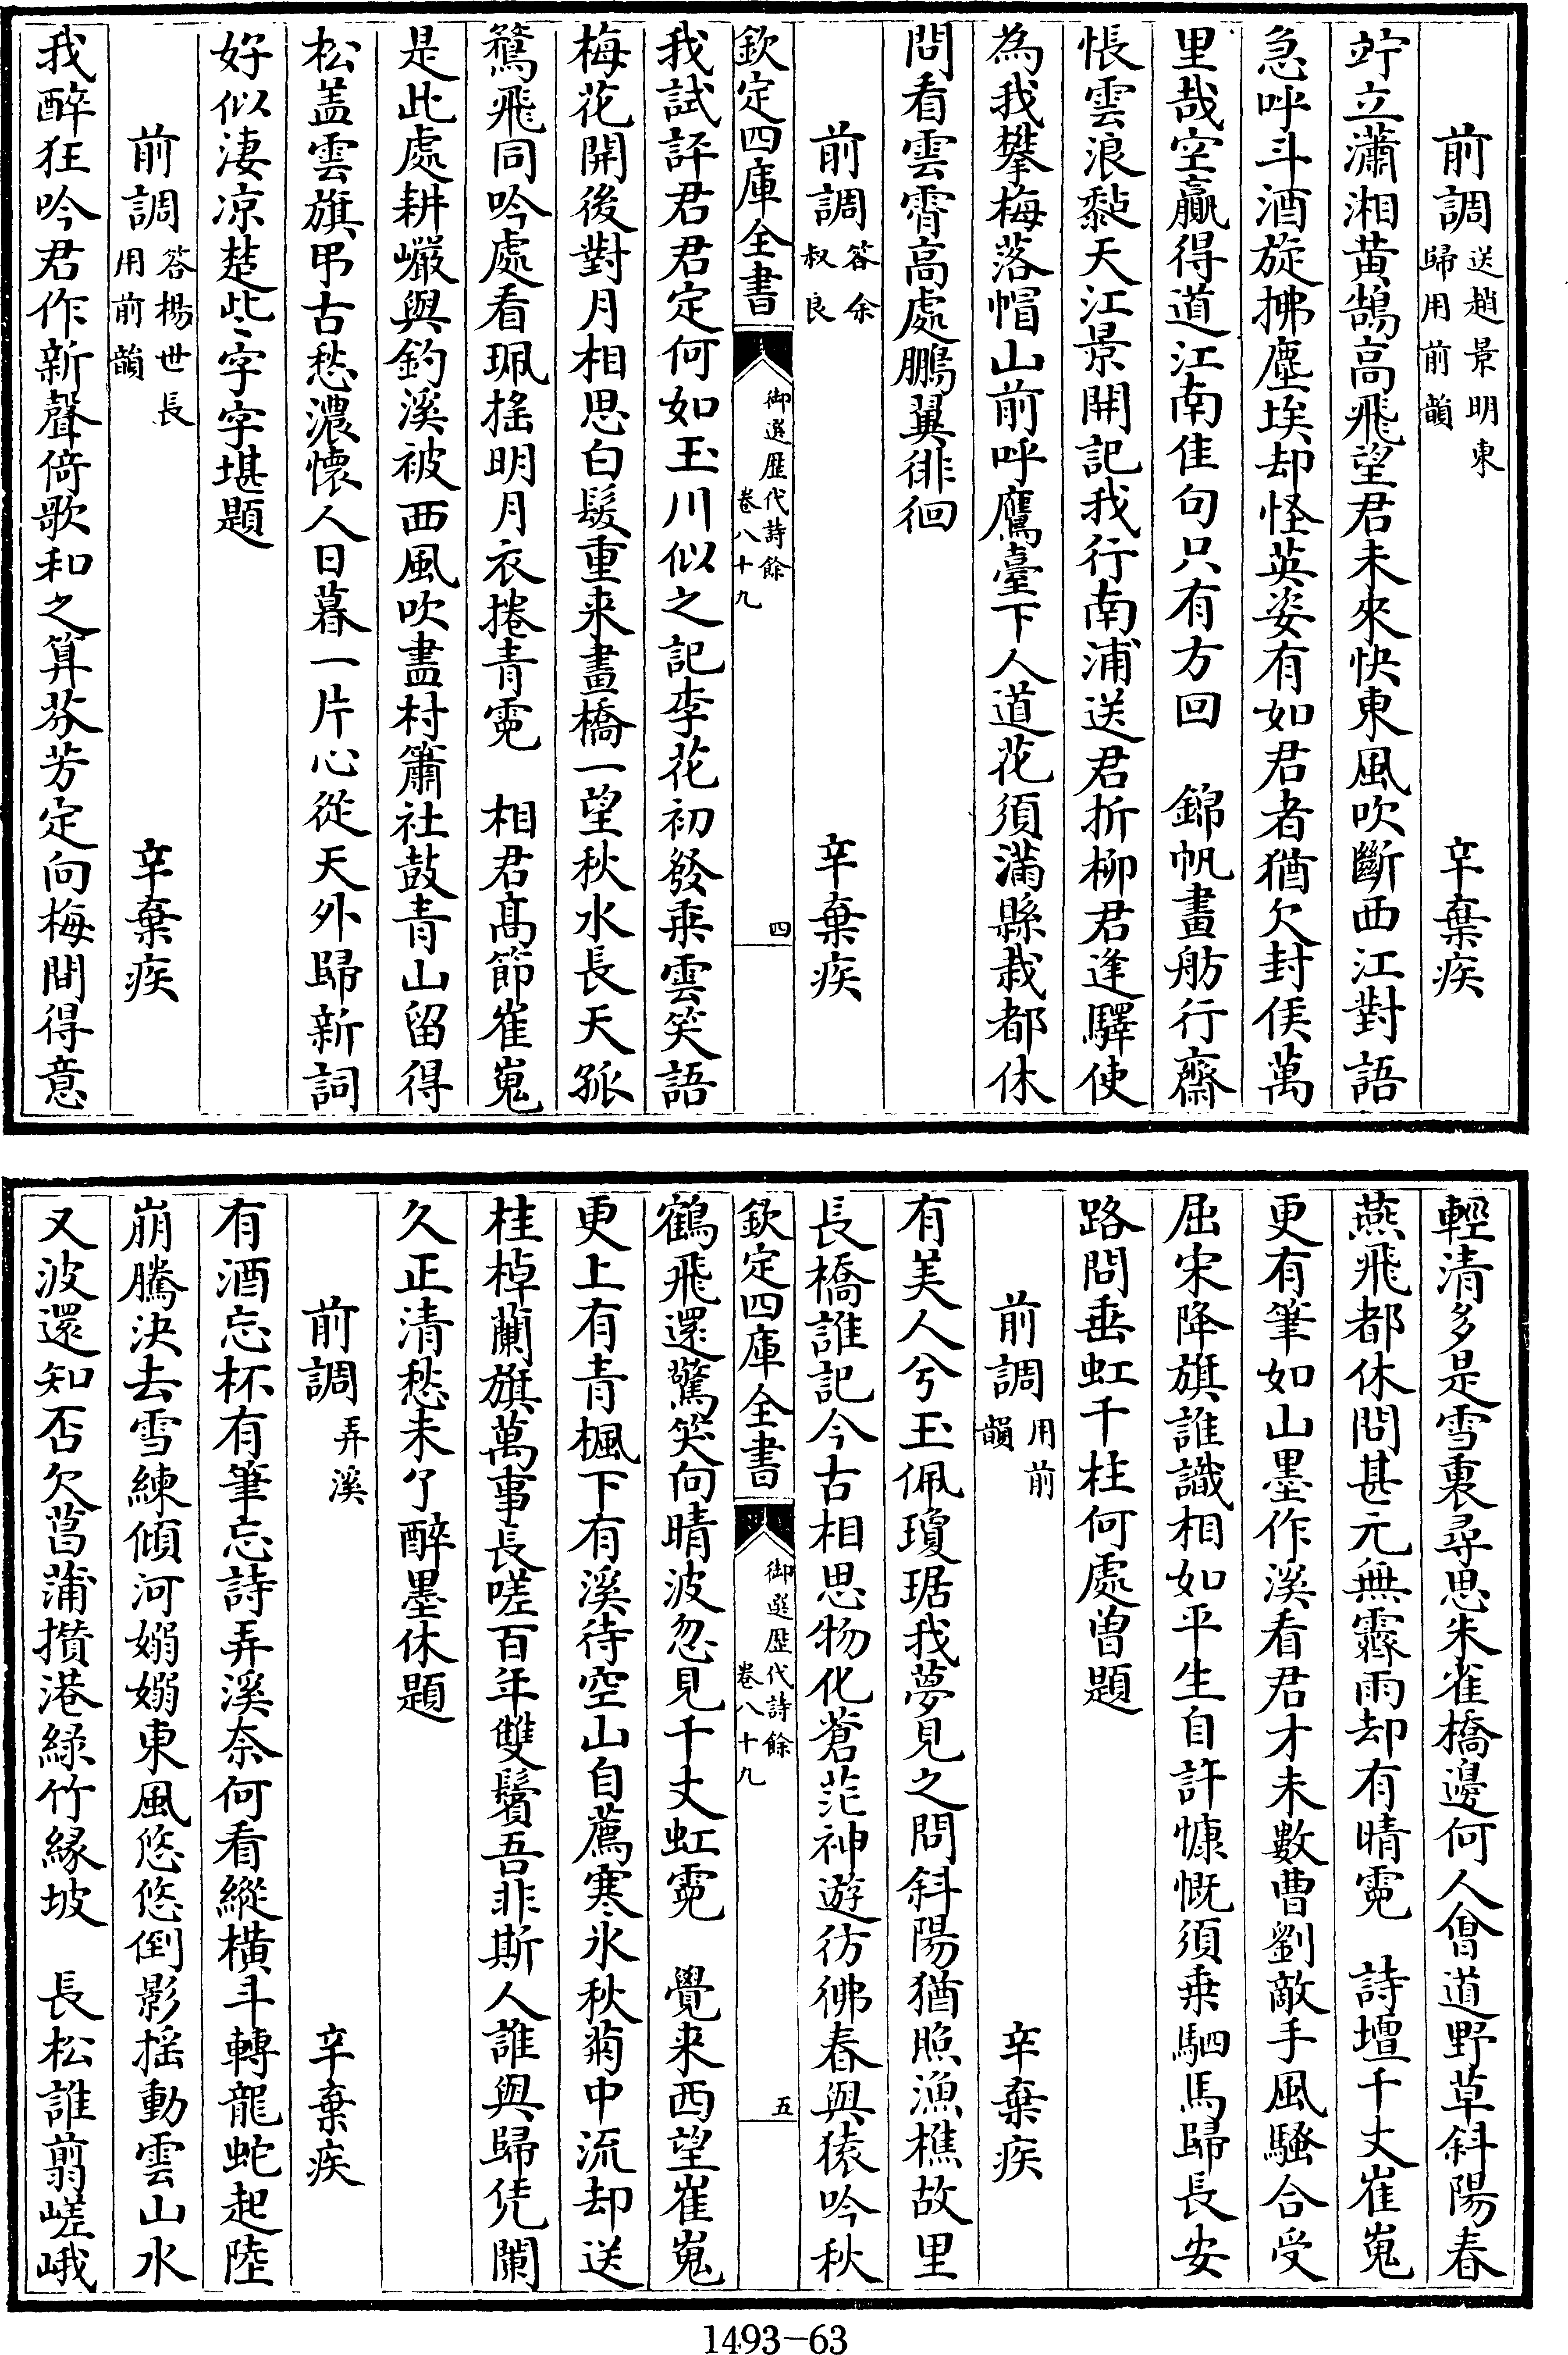 前調送趙景明東歸用前韻　辛棄疾
竚立瀟湘黄鵠高飛望君未來快東風吹斷西江對語
急呼斗酒旋拂塵埃却怪英姿有如君者猶欠封侯萬
里哉空贏得道江南佳句只有方回　錦帆畫舫行齋
悵雲浪黏天江景開記我行南浦送君折柳君逢驛使
為我攀梅落帽山前呼鷹臺下人道花須滿縣栽都休
問看雲霄高處鵬翼徘徊
前調答余叔良　辛棄疾
欽定四庫全書　御選歷代詩餘卷八十九　四
我試評君君定何如玉川似之記李花初發乘雲笑語
梅花開後對月相思白髮重来畫橋一望秋水長天孤
鶩飛同吟處看珮搖明月衣捲青霓　相君髙節崔嵬
是此處耕巖與釣溪被西風吹盡村簫社鼓青山留得
松盖雲旗弔古愁濃懷人日暮一片心從天外歸新詞
好似淒凉楚些字字堪題
前調答楊世長用前韻　辛棄疾
我醉狂吟君作新聲倚歌和之算芬芳定向梅間得意
輕清多是雪裏尋思朱雀橋邊何人㑹道野草斜陽春
燕飛都休問甚元無霽雨却有晴霓　詩壇千丈崔嵬
更有筆如山墨作溪看君才未數曹劉敵手風騷合受
屈宋降旗誰識相如平生自許慷慨須乗駟馬歸長安
路問垂虹千柱何處曾題
前調用前韻　辛棄疾
有美人兮玉佩瓊琚我夢見之問斜陽猶照漁樵故里
長橋誰記今古相思物化蒼茫神遊彷彿春與猿吟秋
欽定四庫全書　御選歷代詩餘卷八十九　五
鶴飛還驚笑向晴波忽見千丈虹霓　覺来西望崔嵬
更上有青楓下有溪待空山自薦寒氷秋菊中流却送
桂棹蘭旗萬事長嗟百年雙鬢吾非斯人誰與歸凭闌
久正清愁未了醉墨休題
前調弄溪　辛棄疾
有酒忘杯有筆忘詩弄溪奈何看縱橫斗轉龍蛇起陸
崩騰決去雪練傾河嫋嫋東風悠悠倒影搖動雲山水
又波還知否欠菖蒲攢港綠竹緣坡　長松誰翦嵯峨
1493-63